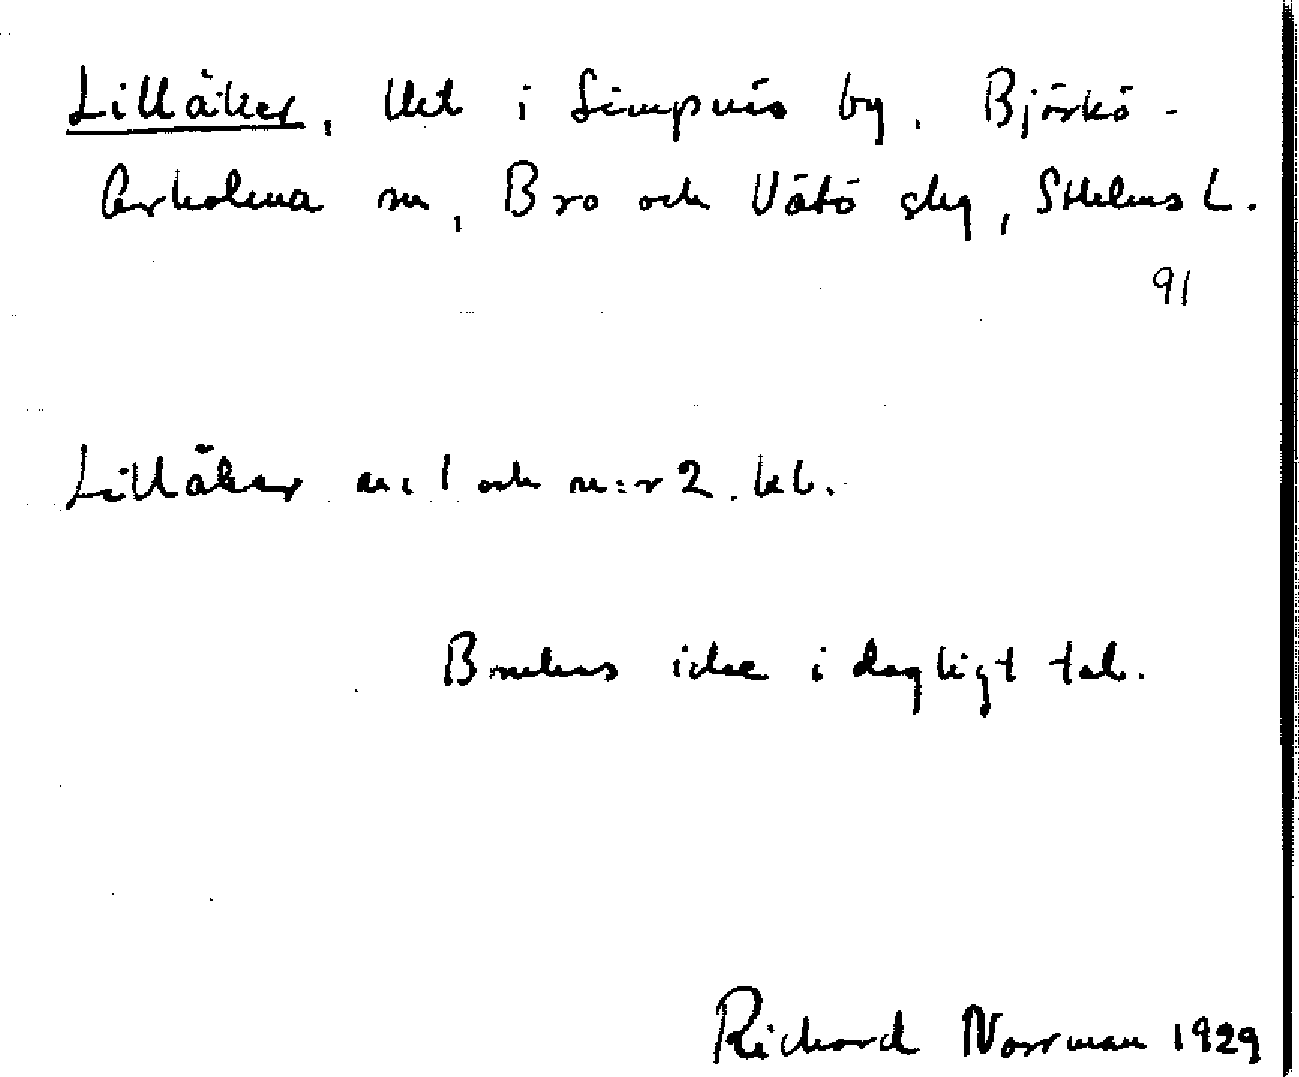 Lillåker, lht i Simpnäs by, Björkö-
Arholma sn, Bro och Vätö slg, Sthlms L.
91
Lillåker n:r 1 och n:r 2. kb.
Brukas icke i dagligt tal.
Richard Norrman 1929